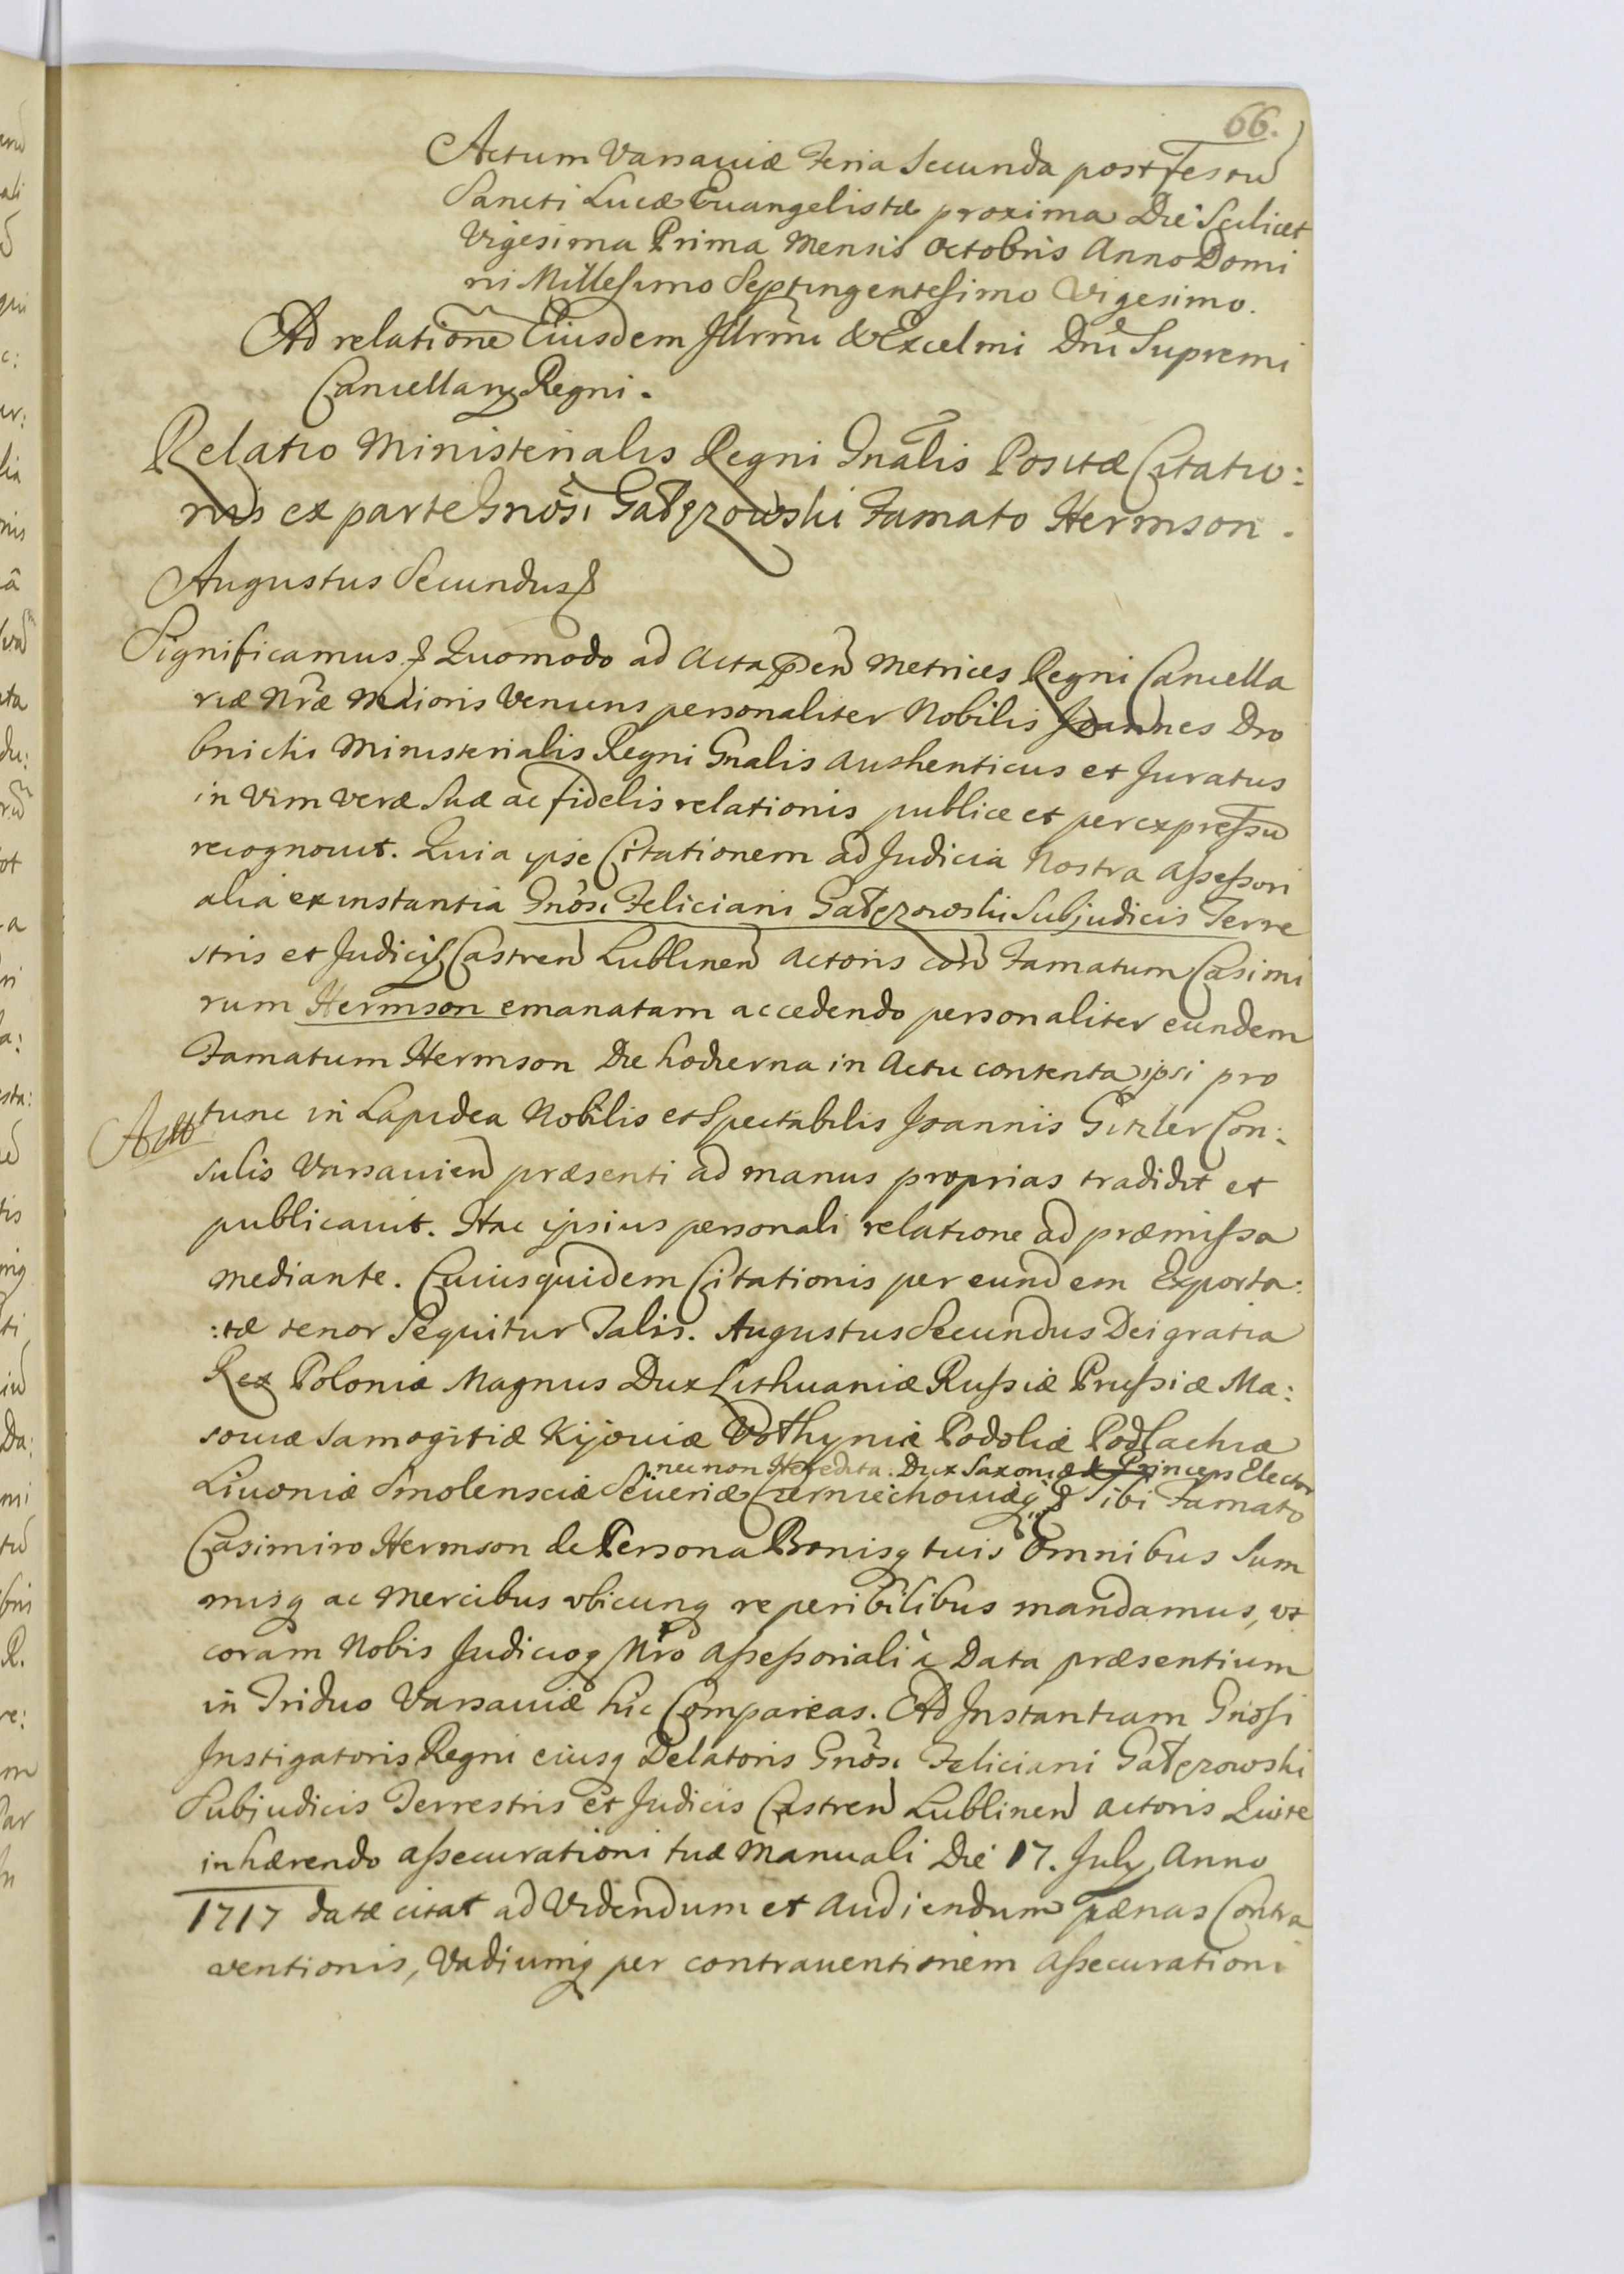 66.
Actum Varsaviæ Feria Secunda post Festũ
Sancti Lucæ Euangelistæ proxima Die Scilicet
Vigesima Prima Mensis Octobris Anno Domi
ni Millesimo Septingentesimo Vigesimo.
Ad relationẽ Eiusdem Illr̃mi & Excelmi Dñi Supremi
Cancellarij Regni.
Relatio Ministerialis Regni Gñalis Positæ Citatio:
nis ex parte Gnõsi Gałęzowski Famato Hermson.
Augustus Secundus &
Significamus & Quomodo ad Acta p̃ñ Metrices Regni Cancella
riæ Nr̃æ Maioris Veniens personaliter Nobilis Joannes Dro
bnicki Ministerialis Regni Gnalis Authenticus et Juratus
in Vim Veræ Suæ ac fidelis relationis publice et per expressũ
recognouit. Quia ipse Citationem ad Judicia Nostra Assessori
alia ex instantia Gnõsi Feliciani Gałęzowski Subjudicis Terre
stris et Judicis Castreñ Lublineñ Actoris coñ Famatum Casimi
rum Hermson emanatam accedendo personaliter eundem
Famatum Hermson Die hodierna in Actu contenta, ipsi pro
tunc in Lapidea Nobilis et Spectabilis Joannis Gizler Con:
sulis Varsauieñ præsenti ad manus proprias tradidit et
publicauit. Hac ipsius personali relatione ad præmissa
mediante. Cuius quidem Citationis per eundem Exporta:
:tæ tenor Sequitur Talis. Augustus Secundus Dei gratia
Rex Poloniæ Magnus Dux Lithuaniæ Russiæ Prussiæ Ma:
souiæ Samogitiæ Kijouiæ Volhyniæ Podoliæ Podlachiæ
nec non Heredita: Dux Saxoniæ & Princeps Elector
Liuoniæ Smolensciæ Seueriæ Czerniechouiæq̃ & Tibi Famato
Casimiro Hermson de Persona Bonisq tuis Omnibus Sum
misq ac Mercibus vbicunq reperibilibus mandamus, vt
coram Nobis Judicioq Nr̃o Assessoriali à Data præsentium
in Triduo Varsauiæ hic Compareas. Ad Instantiam Gnosi
Instigatoris Regni eiusq Delatoris Gnõsi Feliciani Gałęzowski
Subjudicis Terrestris et Judicis Castreñ Lublineñ Actoris Qui te
inhærendo assecurationi tuæ Manuali Die 17. July Anno
1717 datæ citat ad Videndum et Audiendum pænas Contra
ventionis, Vadiumq per contrauentionem assecurationi